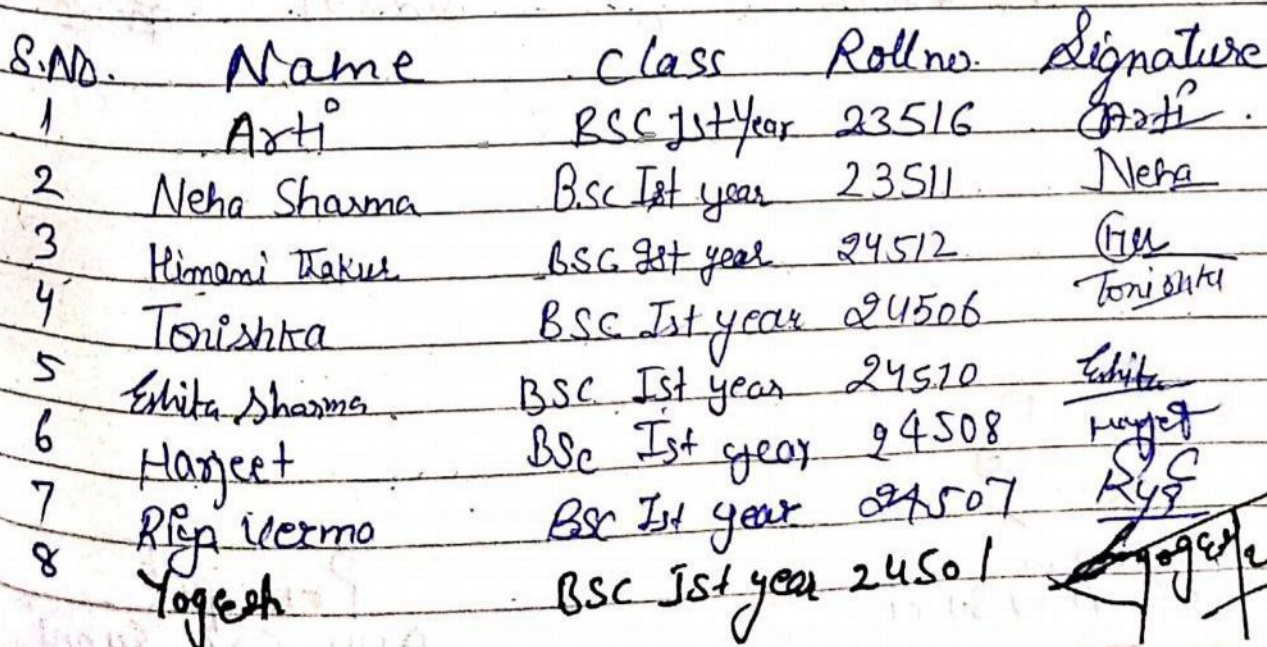 S.No. Name Class Rollno. Signature
1 Arti BSC Ist Year 23516 Arti.
2 Neha Sharma B.SC Ist year 23511 Neha
3 Himani Thakur BSC Ist year 24512
4 Tanishka BSC Ist year 24506 Tanishka
5 Eshita Sharma. BSC Ist year 24510 Eshita
6 Harjeet BSc Ist year 24508 Harjeet
7 Riya Verma BSC Ist year 24507 Riya
8 Yogesh BSC Ist year 24501 Yogesh